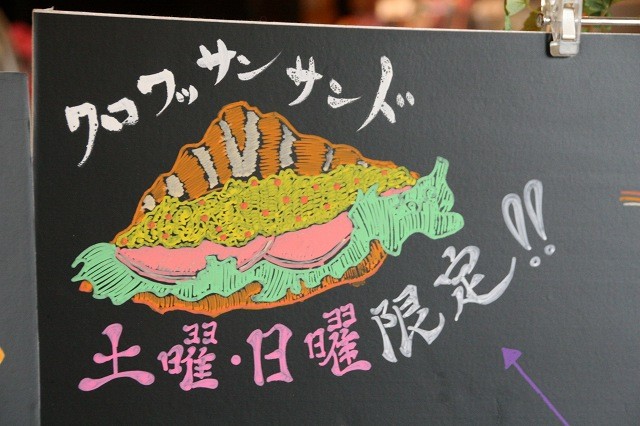 クロワッサンサンド
土曜・日曜限定!!